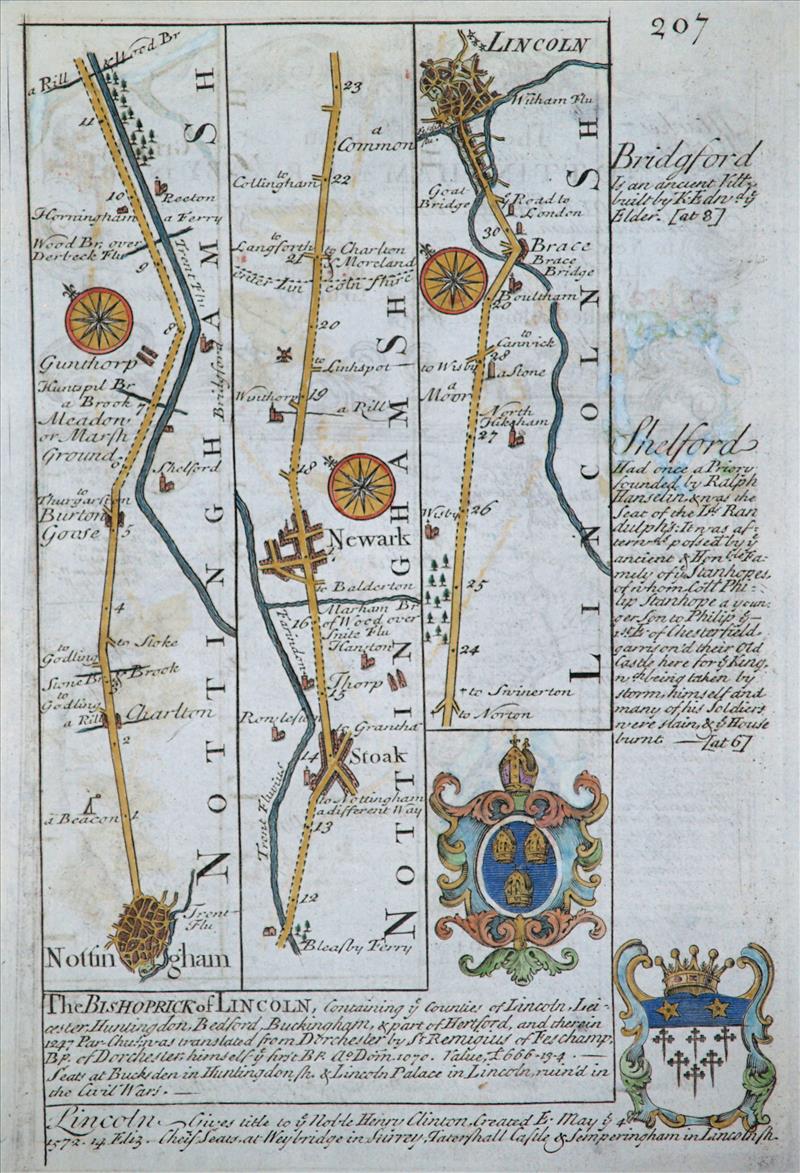 207
a Rill
Wood Br
11
10
Reeton
Horningham
a Ferry
Wood Br. over
Derbeck Flu
9
Trent Flu
8
Bridgford
Gunthorp
Huntspil Br
a Brook
7
Meadow
or Marsh
Ground
6
Shelford
to
Thurgarston
Burton
Goose
5
4
to
Godling
to Stoke
Stone Br & Brook
3
to
Godling
a Rill
Charlton
2
a Beacon
1
Trent
Flu
Nottingham
NOTTINGHAMSH
23
a
Common
to
Collingham
22
to
Langforth
21
to Charlton
& Moreland
Enter Lincolnshire
20
to
Linhspot
Winthorp
19
a Rill
18
Newark
to Balderton
Marham Br
of Wood over
Snite Flu
16
Farindon
Hanston
Thorp
15
Ronlefton
to Grantha
14
Stoak
to Nottingham
a different Way
Trent Fluvius
13
12
Bleasby Ferry
NOTTINGHAMSH
LINCOLN
Witham Flu
Goat
Bridge
Road to
London
30
Brace
Brace
Bridge
Boultham
29
to
Canwick
28
to Wisby
a Stone
a
Moor
North
Hikeham
27
Wisby
26
25
24
to Swinerton
to Norton
LINCOLNSH
Bridgford
Is an ancient Vill:
built by K. Edwd. ye
Elder. [at 8]
Shelford
Had once a Priory
founded by Ralph
Hanselin, & was the
Seat of the Lds. Ran
dulphs: It was af-
terwds. possest by ye
ancient & Honble. Fa-
mely of ye Stanhopes,
of whom Coll Phi-
lip Stanhope a youn-
ger Son to Philip ye
1st. E. of Chesterfield
garrison'd their Old
Castle here for ye King,
wch. being taken by
storm, himself and
many of his Soldiers
were slain, & ye House
burnt — [at 6]
The BISHOPRICK of LINCOLN, Containing ye Counties of Lincoln, Lei-
cester, Huntingdon, Bedford, Buckingham, & part of Hertford, and therein
1247 Par. Chu: was translated from Dorchester by St. Remigius of Feschamp,
Bp. of Dorchester himself ye first BP. Ao. Dom. 1070. Value, £ 666-13-4. —
Seats at Buckden in Huntingdonsh. & Lincoln Palace in Lincoln, ruin'd in
the Civil Wars. —
Lincoln Gives title to ye Noble Henry Clinton, Created E. May ye 4th
1572. 14 Eliz. Cheif Seats, at Weybridge in Surrey, Tatershall Castle & Semperingham in Lincolnsh.